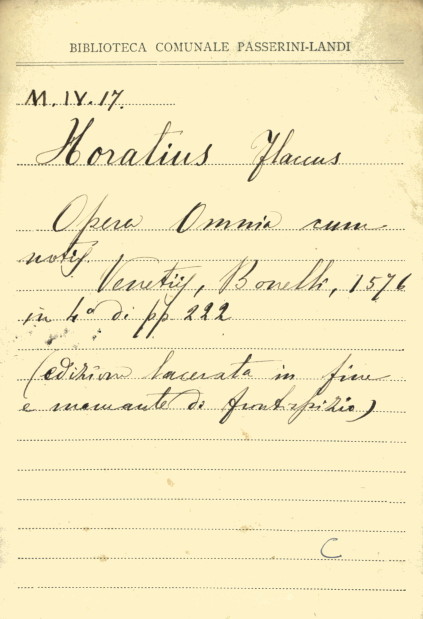 BIBLIOTECA COMUNALE PASSERINI-LANDI
M. IV. 17.
Horatius Flacus
Opera Omnia cum
notis
Venetiis, Bonelli, 1576
in 4° di pp 222
(edizione lacerata in fine
e mancante di frontispizio)
C